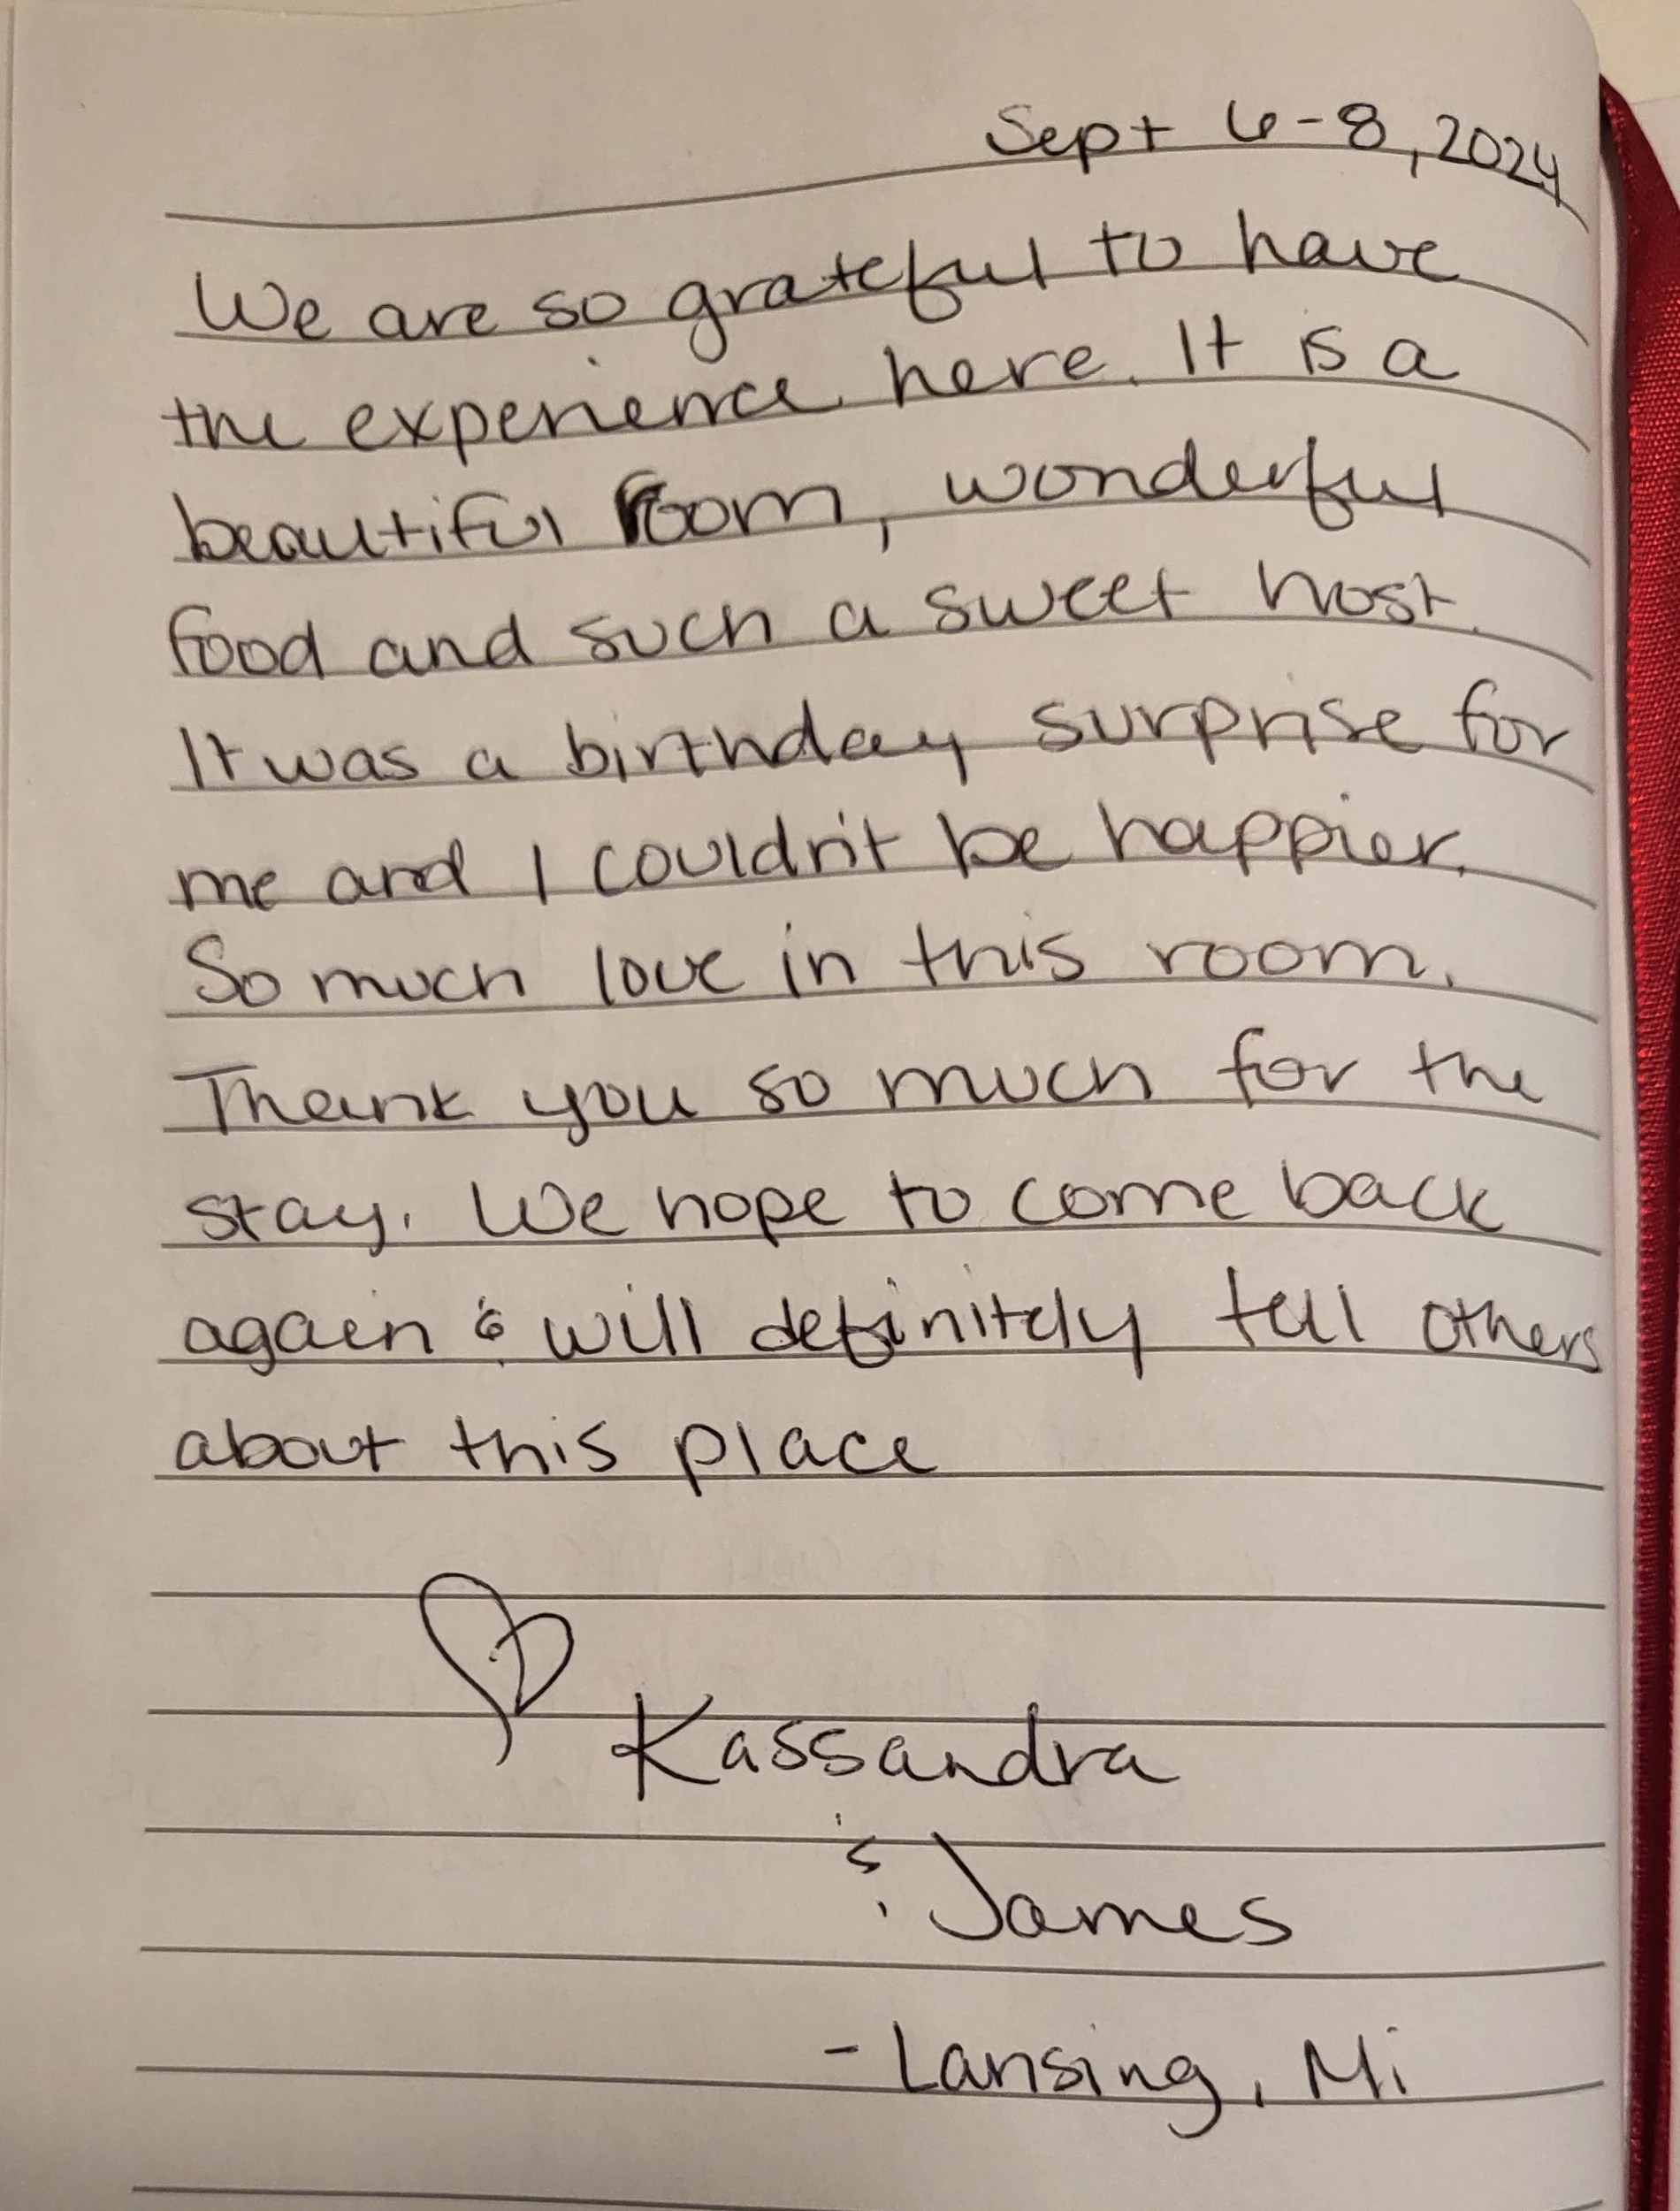 Sept 6-8, 2024
We are so grateful to have
the experience here. It is a
beautiful room, wonderful
food and such a sweet host.
It was a birthday surprise for
me and I couldn't be happier.
So much love in this room.
Thank you so much for the
stay. We hope to come back
again & will definitely tell others
about this place
Kassandra
& James
- Lansing, Mi